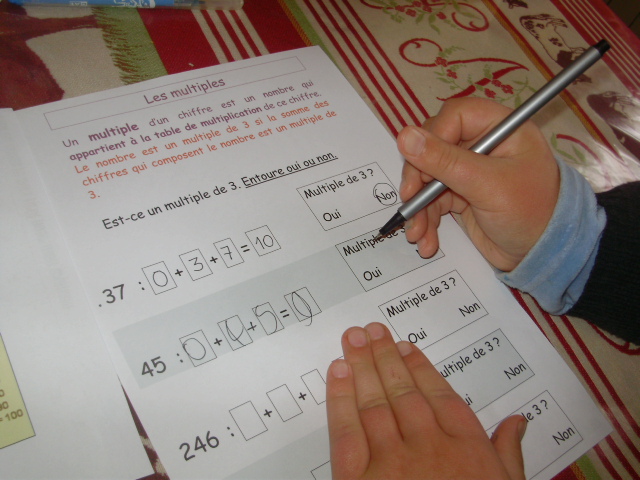 Les multiples
Un multiple d'un chiffre est un nombre qui
appartient à la table de multiplication de ce chiffre.
Le nombre est un multiple de 3 si la somme des
chiffres qui composent le nombre est un multiple de
3.
Est-ce un multiple de 3. Entoure oui ou non.
Multiple de 3 ?
Oui Non
.37 : 0 + 3 + 7 = 10
Multiple de 3
Oui
45 : 0 + 4 + 5 = 9
Multiple de 3 ?
Oui Non
246 : + +
ultiple de 3 ?
ui Non
de 3 ?
Non